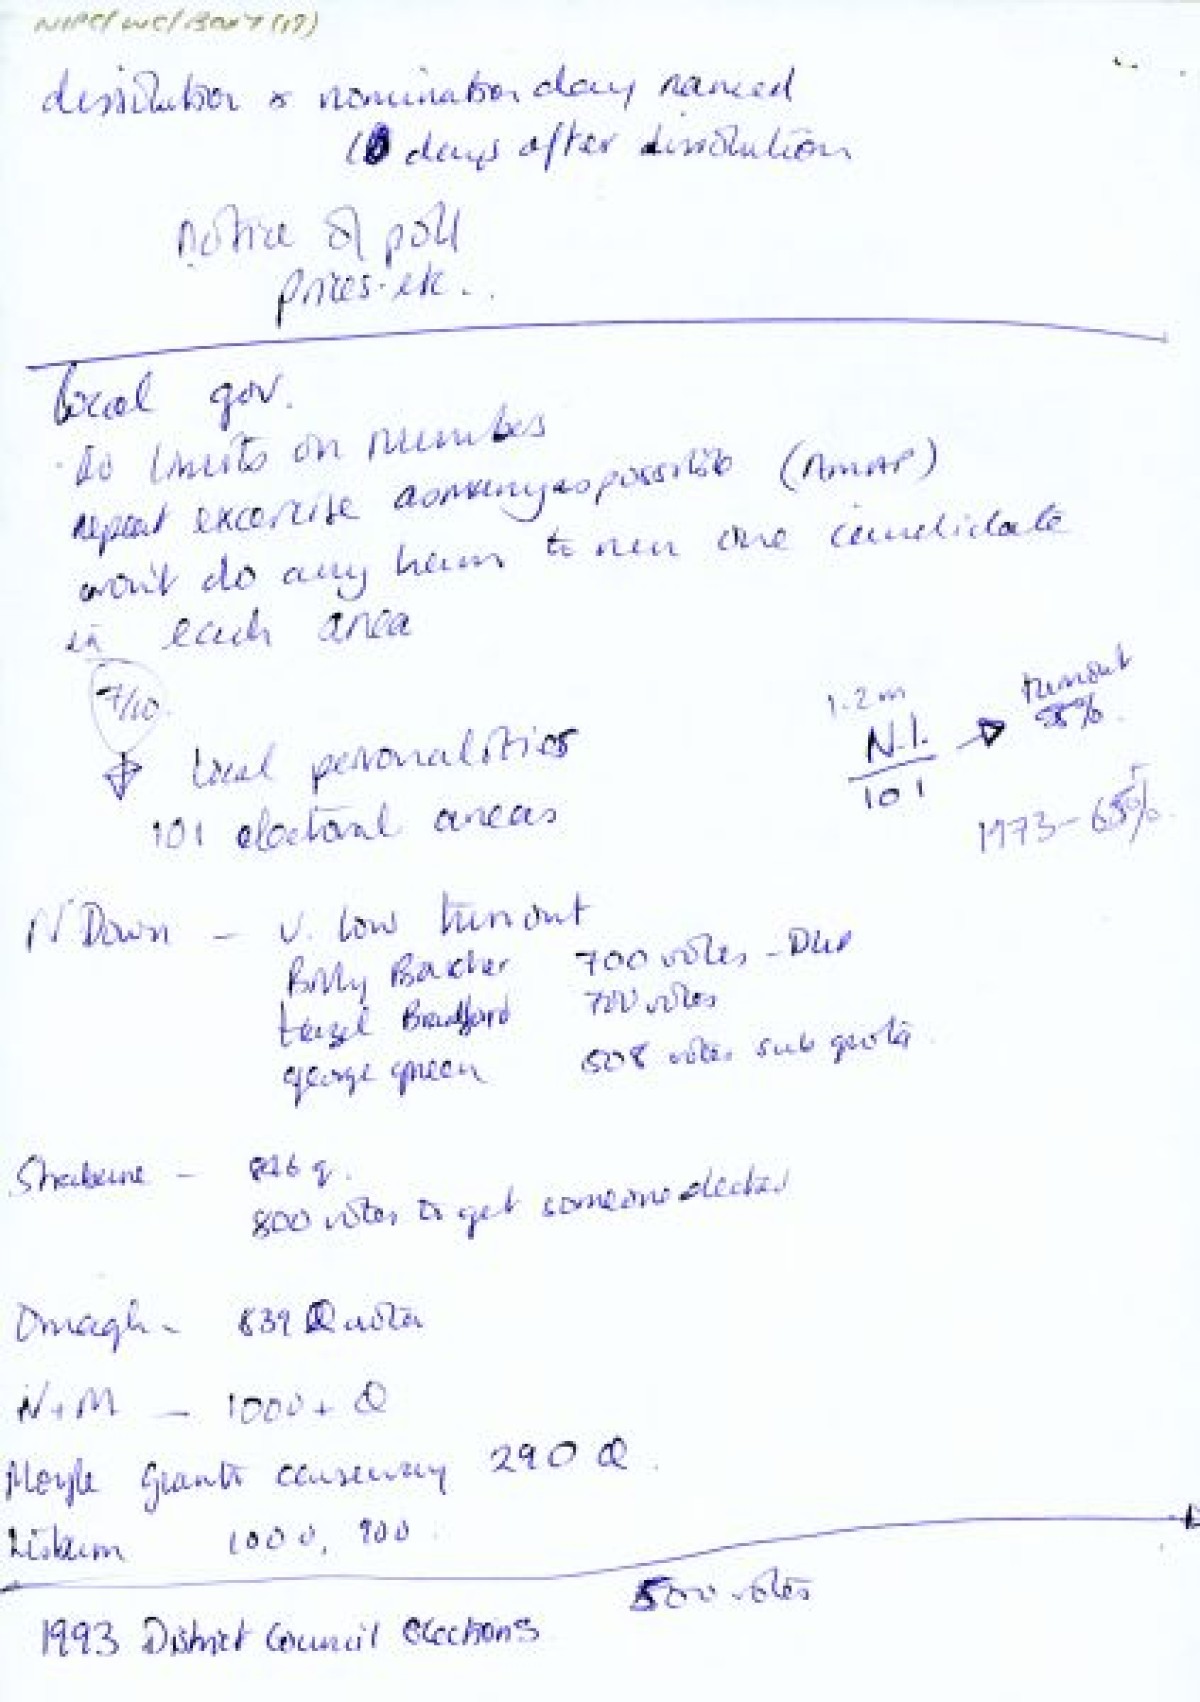 NIPC/WC/
dissolution & nomination day named
10 days after dissolution
notice of poll
prices. etc..
Local gov.
no limits on number
repeat excercise asmanyaspossible (AMAP)
won't do any harm to run one candidate
in each area
7/10.
Local personalities
101 electoral areas
1.2m
N.I.
101
turnout
1973 - 65%
N Down - v. low turnout
Billy 700 votes - DUP
Bradford 700 votes
george green 608 votes sub quota.
Strabane - 826 q.
800 votes to get someone elected
Omagh - 839 Quota
N+M - 1000+ Q
Moyle Giants causeway 290 Q.
Lisburn 1000, 900
500 votes
1993 District Council elections